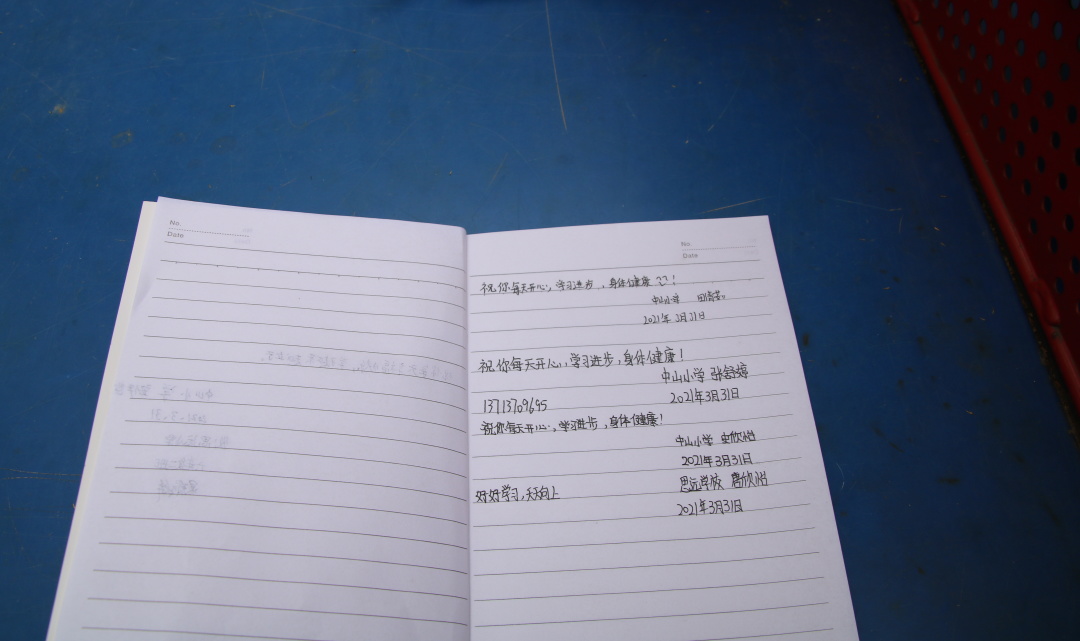 No.
Date
No.
Date
祝你每天开心,学习进步,身体健康!
中山小学
2021年3月31日
祝你每天开心,学习进步,身体健康!
中山小学 张舒婷
2021年3月31日
13713709695
祝你每天开心,学习进步,身体健康!
中山小学 史欣怡
2021年3月31日
思远学校
好好学习,天天向上
2021年3月31日